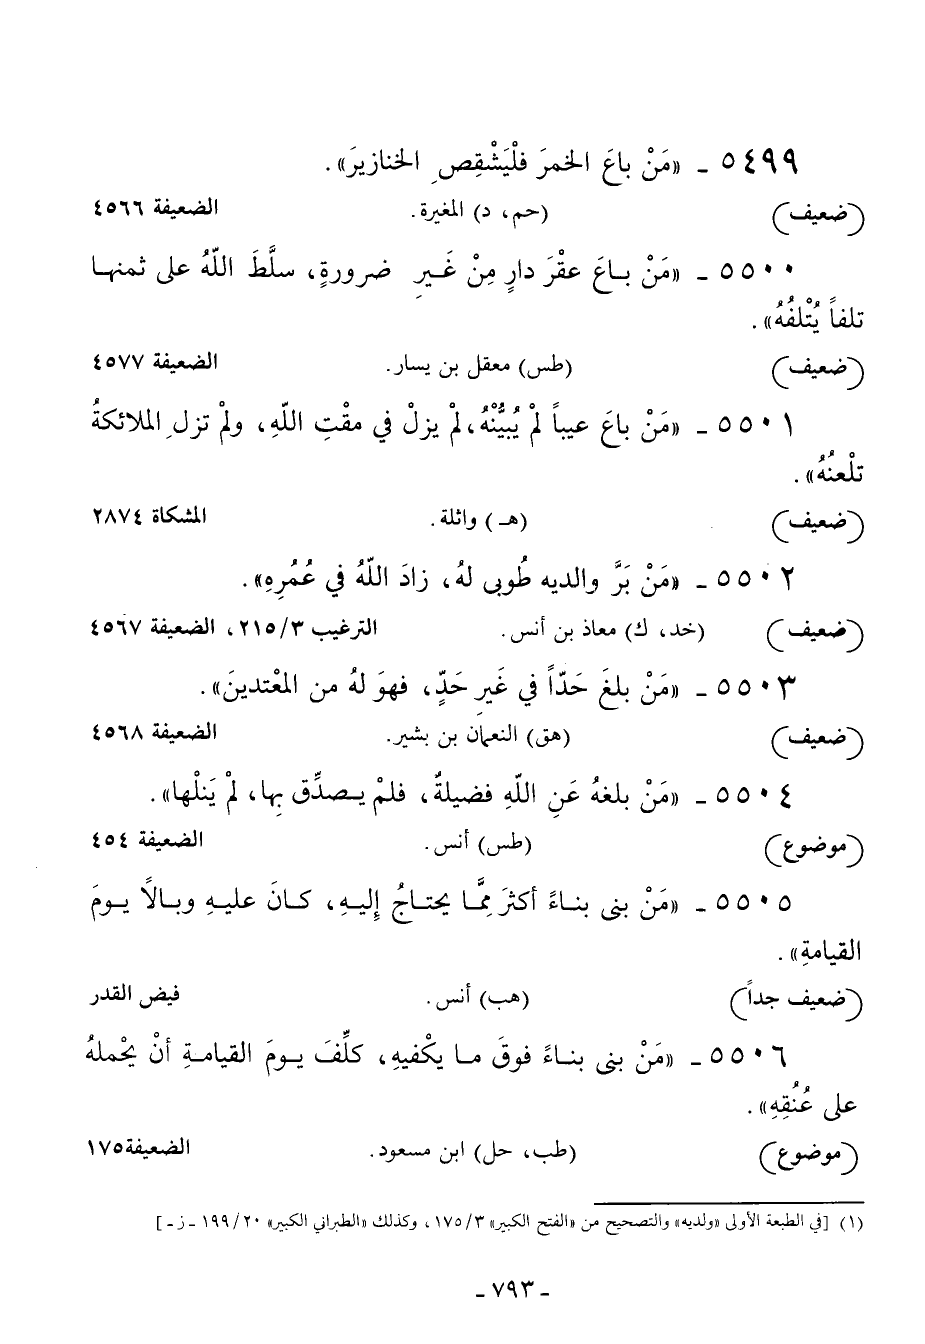 ٥٤٩٩ ـ «مَنْ باعَ الخمرَ فلْيَشْقِصِ الخنازيرَ».
(ضعيف) (حم، د) المغيرة. الضعيفة ٤٥٦٦
٥٥٠٠ ـ «مَنْ باعَ عقْرَ دارٍ مِنْ غَيرِ ضرورةٍ، سلَّطَ اللّهُ على ثمنها
تلفاً يُتْلفُهُ».
(ضعيف) (طس) معقل بن يسار. الضعيفة ٤٥٧٧
٥٥٠١ ـ «مَنْ باعَ عيباً لمْ يُبيِّنْهُ، لمْ يزلْ في مقْتِ اللّهِ، ولمْ تزلِ الملائكةُ
تلْعنُهُ».
(ضعيف) (هـ) واثلة. المشكاة ٢٨٧٤
٥٥٠٢ ـ «مَنْ بَرَّ والديه طُوبى لهُ، زادَ اللّهُ في عُمُرِهِ».
(ضعيف) (خد، ك) معاذ بن أنس. الترغيب ٢١٥/٣، الضعيفة ٤٥٦٧
٥٥٠٣ ـ «مَنْ بلغَ حَدّاً في غَيرِ حَدٍّ، فهوَ لهُ من المعْتدينَ».
(ضعيف) (هق) النعمان بن بشير. الضعيفة ٤٥٦٨
٥٥٠٤ ـ «مَنْ بلغهُ عَنِ اللّهِ فضيلةٌ، فلمْ يصدِّق بها، لمْ يَنلْها».
(موضوع) (طس) أنس. الضعيفة ٤٥٤
٥٥٠٥ ـ «مَنْ بنى بناءً أكثرَ مِمَّا يحتاجُ إليهِ، كانَ عليهِ وبالًا يومَ
القيامةِ».
(ضعيف جداً) (هب) أنس. فيض القدر
٥٥٠٦ ـ «مَنْ بنى بناءً فوقَ ما يكْفيهِ، كلِّفَ يومَ القيامةِ أنْ يحْملهُ
على عُنُقِهِ».
(موضوع) (طب، حل) ابن مسعود. الضعيفة١٧٥
(١) [في الطبعة الأولى «ولديه» والتصحيح من «الفتح الكبير» ١٧٥/٣، وكذلك «الطبراني الكبير» ١٩٩/٢٠ ـ ز ـ]
ـ ٧٩٣ ـ